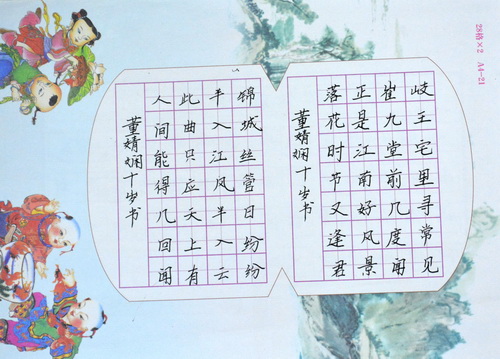 岐王宅里寻常见
崔九堂前几度闻
正是江南好风景
落花时节又逢君
董婧娴十岁书
锦城丝管日纷纷
半入江风半入云
此曲只应天上有
人间能得几回闻
董婧娴十岁书
28格×2 A4-21